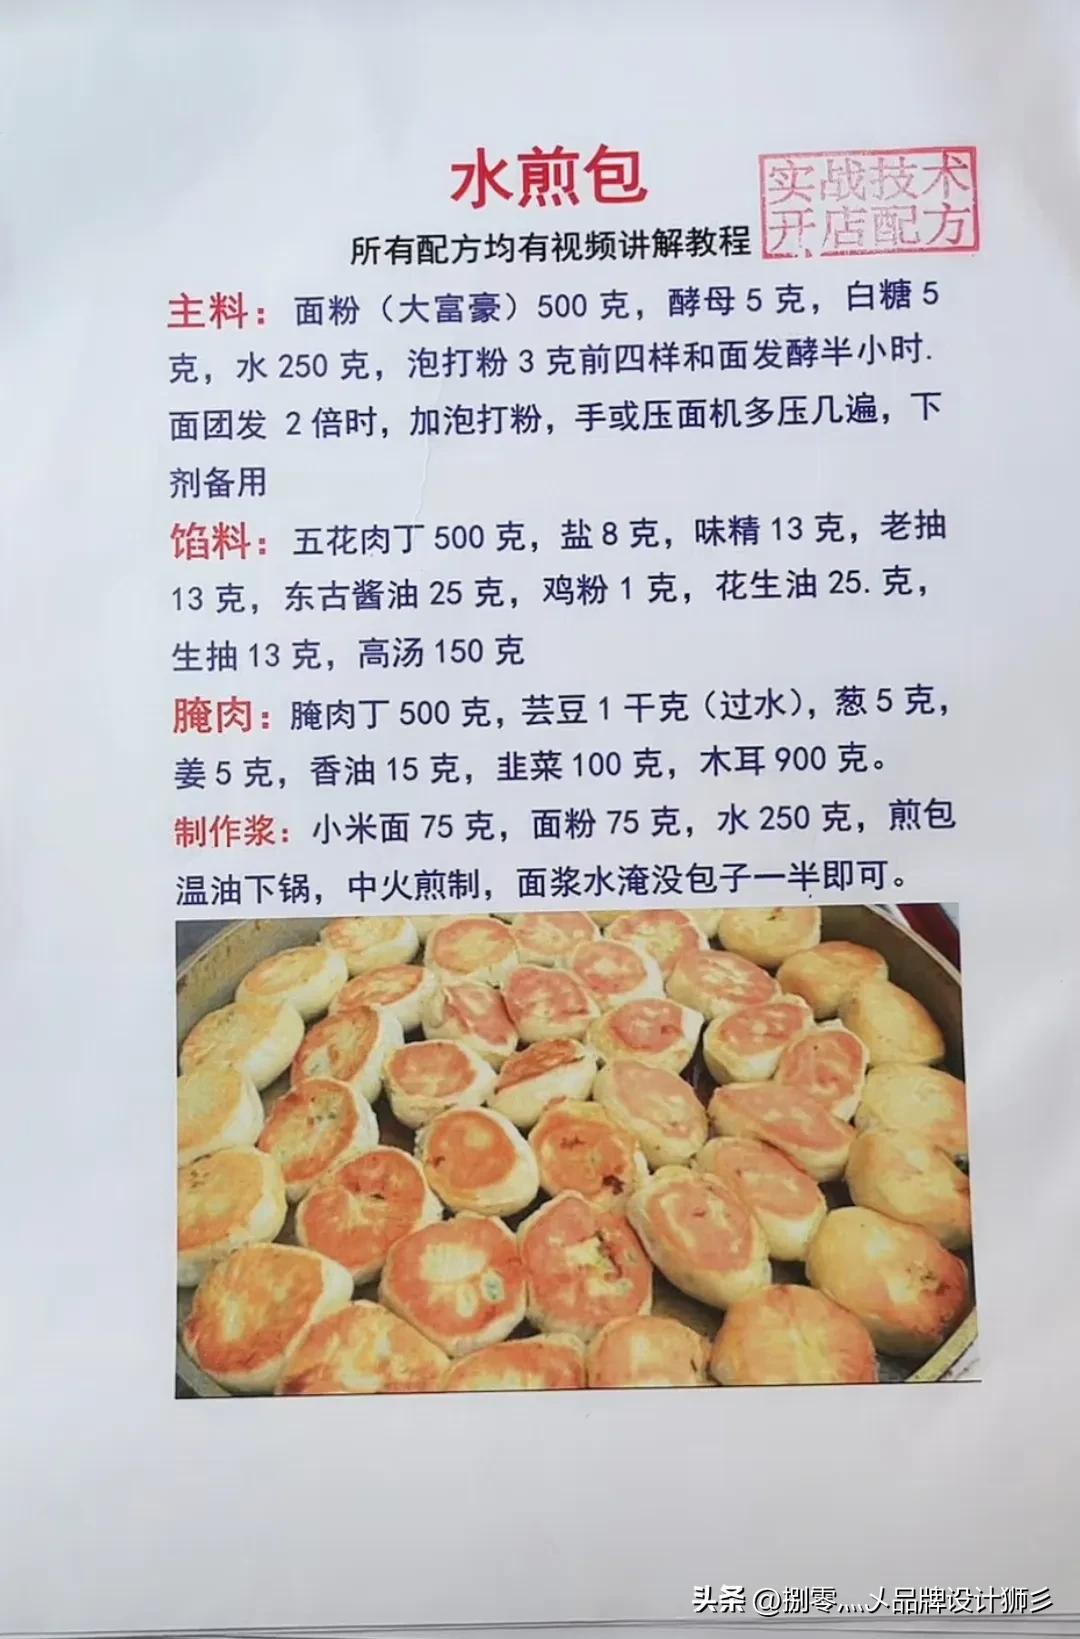 水煎包
实战技术
开店配方
所有配方均有视频讲解教程
主料：面粉（大富豪）500 克，酵母 5 克，白糖 5
克，水 250 克，泡打粉 3 克前四样和面发酵半小时.
面团发 2 倍时，加泡打粉，手或压面机多压几遍，下
剂备用
馅料：五花肉丁 500 克，盐 8 克，味精 13 克，老抽
13 克，东古酱油 25 克，鸡粉 1 克，花生油 25. 克，
生抽 13 克，高汤 150 克
腌肉：腌肉丁 500 克，芸豆 1 干克（过水），葱 5 克，
姜 5 克，香油 15 克，韭菜 100 克，木耳 900 克。
制作浆：小米面 75 克，面粉 75 克，水 250 克，煎包
温油下锅，中火煎制，面浆水淹没包子一半即可。
头条 @捌零灬乄品牌设计狮彡